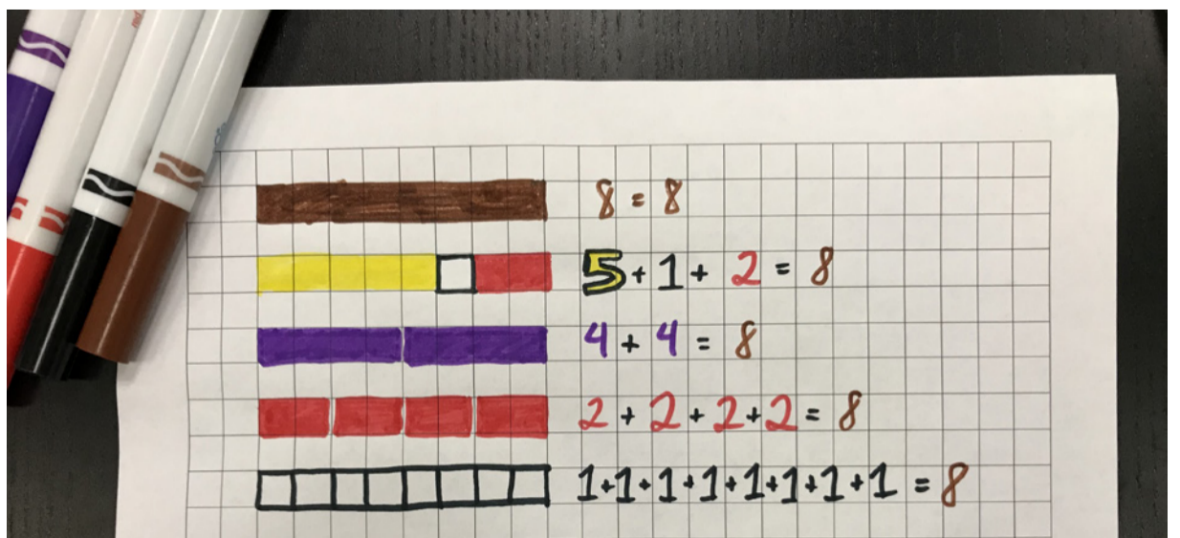 8 = 8
5 + 1 + 2 = 8
4 + 4 = 8
2 + 2 + 2 + 2 = 8
1 + 1 + 1 + 1 + 1 + 1 + 1 + 1 = 8